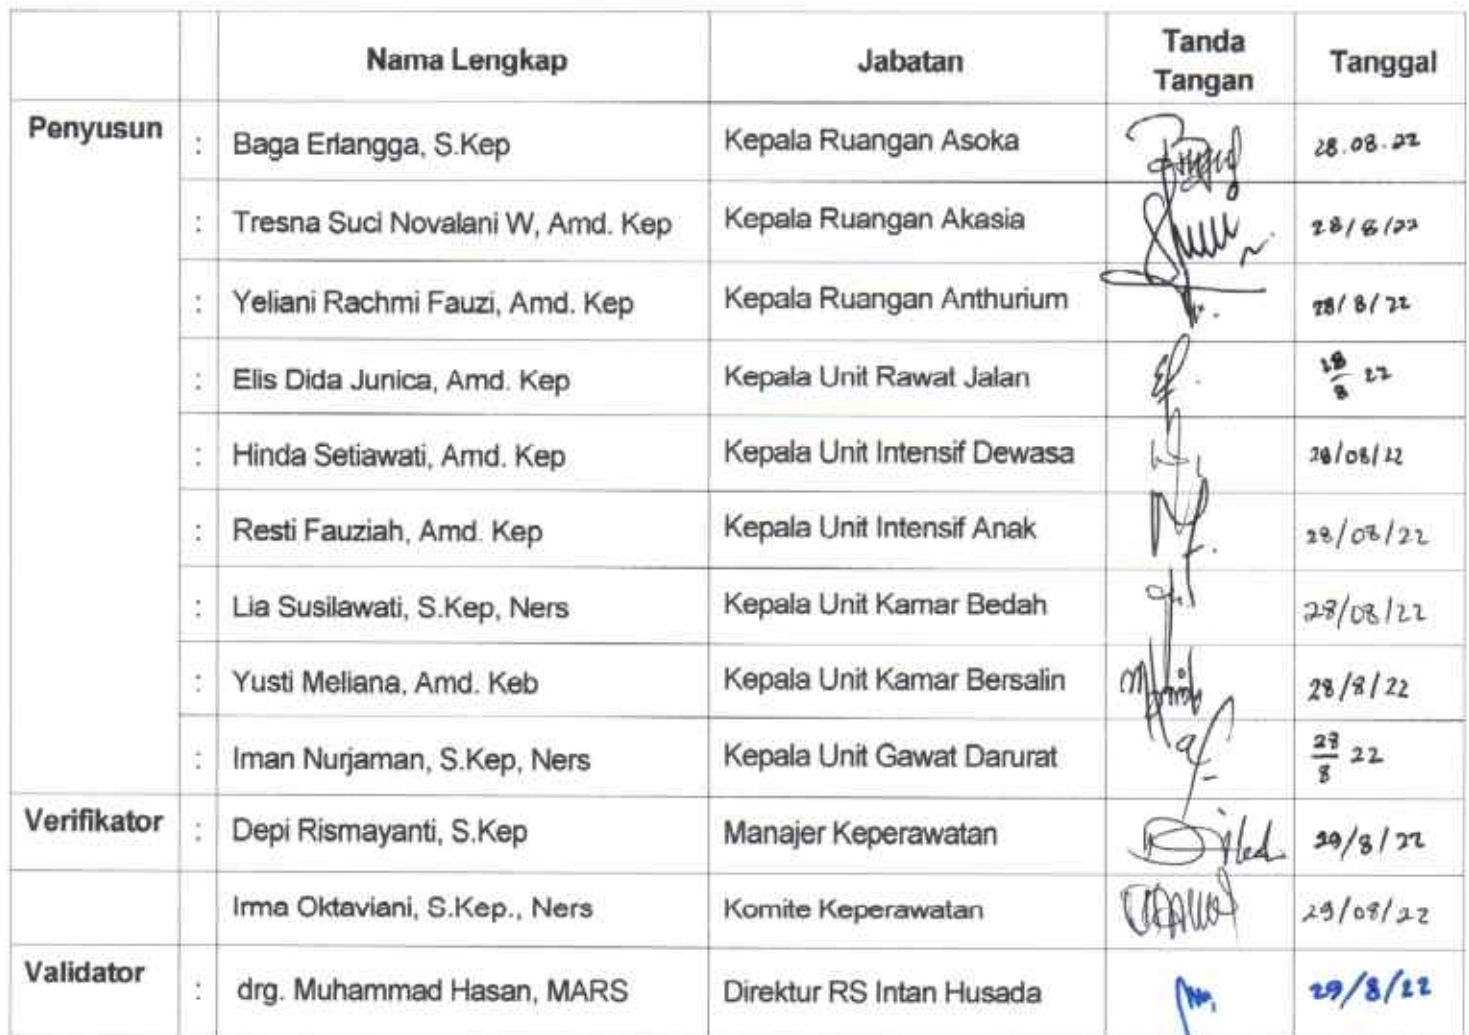 Nama Lengkap Jabatan Tanda Tangan Tanggal
Penyusun : Baga Erlangga, S.Kep Kepala Ruangan Asoka 28.08.22
: Tresna Suci Novalani W, Amd. Kep Kepala Ruangan Akasia 28/8/22
: Yeliani Rachmi Fauzi, Amd. Kep Kepala Ruangan Anthurium 28/8/22
: Elis Dida Junica, Amd. Kep Kepala Unit Rawat Jalan 28/8 22
: Hinda Setiawati, Amd. Kep Kepala Unit Intensif Dewasa 28/08/22
: Resti Fauziah, Amd. Kep Kepala Unit Intensif Anak 28/08/22
: Lia Susilawati, S.Kep, Ners Kepala Unit Kamar Bedah 28/08/22
: Yusti Meliana, Amd. Keb Kepala Unit Kamar Bersalin 28/8/22
: Iman Nurjaman, S.Kep, Ners Kepala Unit Gawat Darurat 28/8 22
Verifikator : Depi Rismayanti, S.Kep Manajer Keperawatan 29/8/22
Irma Oktaviani, S.Kep., Ners Komite Keperawatan 29/08/22
Validator : drg. Muhammad Hasan, MARS Direktur RS Intan Husada 29/8/22